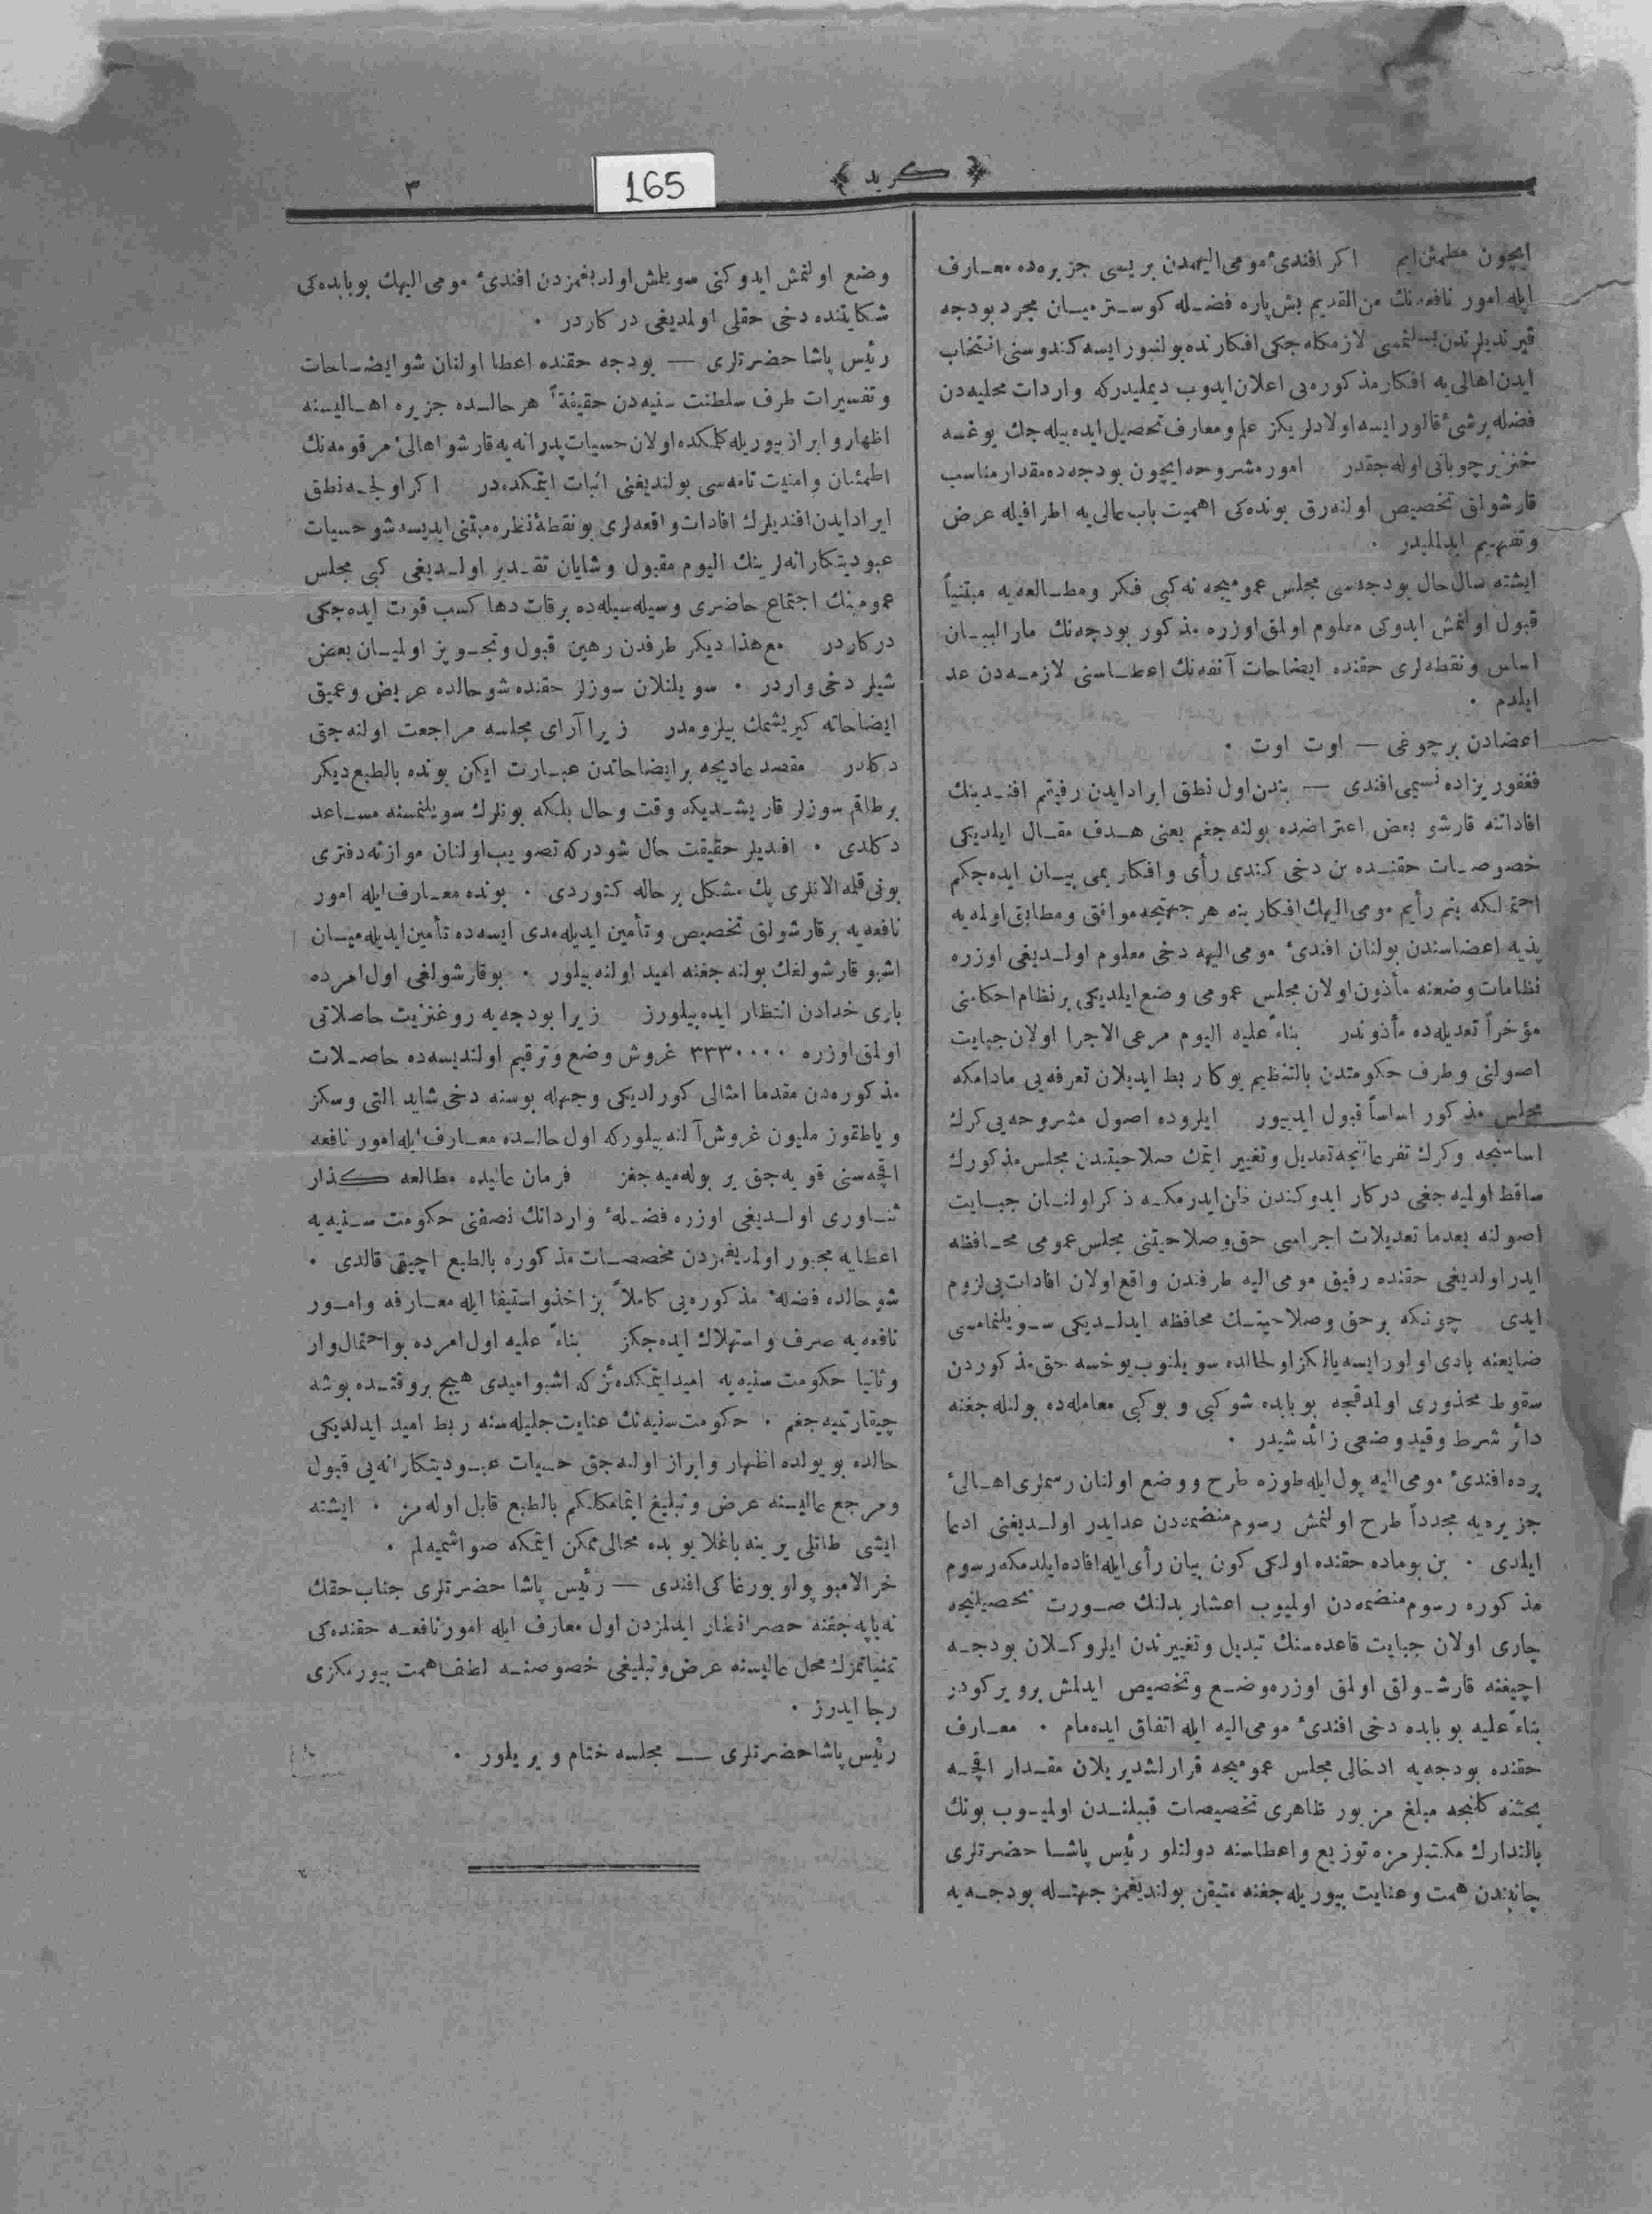 ﴿ كريد ﴾
165
٣
ايچون مطمئن ايم اكر افندئ مومى اليهمدن بريسى جزيره‌ده معارف
ايله امور نافعه‌نك من القديم بش پاره فضله كوسترميان مجرد بودجه
قيرنديلرندن بسلنمسى لازمكله‌جكى افكارنده بولنيور ايسه كندوسنى انتخاب
ايدن اهالى‌يه افكار مذكوره‌يى اعلان ايدوب ديمليدركه واردات محليه‌دن
فضله برشئ قالور ايسه اولادلريكز علم و معارف تحصيل ايده بيله‌جك يوغسه
خنزير چوبانى اوله‌جقدر امور مشروحه ايچون بودجه‌ده مقدار مناسب
قارشولق تخصيص اولنه‌رق بونده‌كى اهميت باب عالى‌يه اطرافيله عرض
وتفهيم ايدلمليدر .
ايشته سال حال بودجه‌سى مجلس عموميجه نه كبى فكر ومطالعه‌يه مبتنياً
قبول اولنمش ايدوكى معلوم اولمق اوزره مذكور بودجه‌نك مار البيان
اساس ونقطه‌لرى حقنده ايضاحات آنفه‌نك اعطاسنى لازمه‌دن عد
ايلدم .
اعضادن برچوغى — اوت اوت .
فغفوريزاده نسيمى افندى — بندن اول نطق ايراد ايدن رفيقم افندينك
افاداتنه قارشو بعض اعتراضده بولنه‌جغم يعنى هدف مقال ايلديكى
خصوصات حقنده بن دخى كندى رأى وافكاريمى بيان ايده‌جكم
احتمالكه بنم رأيم مومى اليهك افكارينه هر جهتيجه موافق ومطابق اوله‌يه
بذيه اعضاسندن بولنان افندئ مومى اليهه دخى معلوم اولديغى اوزره
نظامات وضعنه مأذون اولان مجلس عمومى وضع ايلديكى بر نظام احكامنى
مؤخراً تعديله‌ده مأذوندر بناءً عليه اليوم مرعى الاجرا اولان جبايت
اصولنى وطرف حكومتدن بالتنظيم بوكا ربط ايديلان تعرفه‌يى مادامكه
مجلس مذكور اساساً قبول ايديور ايلروده اصول مشروحه‌يى كرك
اساسنجه وكرك تفرعاتنجه تعديل وتغيير ايتمك صلاحيتندن مجلس مذكورك
ساقط اوليه‌جغى دركار ايدوكندن ظن ايدرمكه ذكر اولنان جبايت
اصولنه بعدما تعديلات اجراسى حق وصلاحيتنى مجلس عمومى محافظه
ايدر اولديغى حقنده رفيق مومى اليه طرفندن واقع اولان افادات بى لزوم
ايدى چونكه بر حق وصلاحيتك محافظه ايدلديكى سويلنمامسى
ضايعنه بادى اولور ايسه يالكز اولحالده سويلنوب يوخسه حق مذكوردن
سقوط محذورى اولدقجه بو بابده شو كبى و بو كبى معامله‌ده بولنله‌جغنه
دائر شرط وقيد وضعى زائد شيدر .
برده افندئ مومى اليه پول ايله طوزه طرح ووضع اولنان رسملرى اهالئ
جزيره‌يه مجدداً طرح اولنمش رسوم منضمه‌دن عدايدر اولديغنى ادعا
ايلدى . بن بوماده حقنده اولكى كون بيان رأى ايله افاده ايلدمكه رسوم
مذكوره رسوم منضمه‌دن اوليوب اعشار بدلنك صورت تحصيلنجه
جارى اولان جبايت قاعده‌سنك تبديل وتغييرندن ايلرو كلان بودجه
اچيغنه قارشولق اولمق اوزره وضع وتخصيص ايدلمش برويركودر
بناءً عليه بو بابده دخى افندئ مومى اليه ايله اتفاق ايده‌مام . معارف
حقنده بودجه‌يه ادخالى مجلس عموميجه قرارلشديريلان مقدار اقچه
بحثنه كلنجه مبلغ مزبور ظاهرى تخصيصات قبيلندن اوليوب بونك
بالتدارك مكتبلرمزه توزيع واعطاسنه دولتلو رئيس پاشا حضرتلرى
جانبندن همت وعنايت بيوريله‌جغنه متيقن بولنديغمز جهتله بودجه‌يه
وضع اولنمش ايدوكنى سويلمش اولديغمزدن افندئ مومى اليهك بوبابده‌كى
شكايتنده دخى حقلى اولمديغى دركاردر .
رئيس پاشا حضرتلرى — بودجه حقنده اعطا اولنان شو ايضاحات
وتفسيرات طرف سلطنت سنيه‌دن حقيقةً هر حالده جزيره اهاليسنه
اظهار وابراز بيوريله كلمكده اولان حسيات پدرانه‌يه قارشو اهالئ مرقومه‌نك
اطمئنان وامنيت تامه‌سى بولنديغنى اثبات ايتمكده‌در اكر اولجه نطق
ايراد ايدن افنديلرك افادات واقعه‌لرى بو نقطهٔ نظره مبتنى ايديسه شو حسيات
عبوديتكارانه‌لرينك اليوم مقبول وشايان تقدير اولديغى كبى مجلس
عمومينك اجتماع حاضرى وسيله‌سيله‌ده برقات دها كسب قوت ايده‌جكى
دركاردر مع هذا ديكر طرفدن رهين قبول وتجويز اوليان بعض
شيلر دخى واردر . سويلنلان سوزلر حقنده شو حالده عريض وعميق
ايضاحاته كيريشمك بيلزومدر زيرا آراى مجلسه مراجعت اولنه‌جق
دكلدر مقصد عاديجه بر ايضاحاتدن عبارت ايكن بونده بالطبع ديكر
برطاقم سوزلر قاريشديكه وقت وحال بلكه بونلرك سويلنمسنه مساعد
دكلدى . افنديلر حقيقت حال شودركه تصويب اولنان موازنه دفترى
بونى قلمه الانلرى پك مشكل بر حاله كتوردى . بونده معارف ايله امور
نافعه‌يه برقارشولق تخصيص وتأمين ايديله‌مدى ايسه‌ده تأمين ايديله‌ميان
اشبو قارشولغك بولنه‌جغنه اميد اولنه‌بيلور . بوقارشولغى اول امرده
بارى خدادن انتظار ايده‌بيلورز زيرا بودجه‌يه روغنزيت حاصلاتى
اولمق اوزره ٣٣٣٠٠٠٠ غروش وضع وترقيم اولنديسه‌ده حاصلات
مذكوره‌دن مقدما امثالى كورلديكى وجهله بوسنه دخى شايد التى وسكز
وياطقوز مليون غروش آلنه‌بيلوركه اول حالده معارف ايله امور نافعه
اقچه‌سنى قويه‌جق ير بوله‌ميه‌جغز فرمان عاليده مطالعه كذار
ثناورى اولديغى اوزره فضلهٔ وارداتك نصفنى حكومت سنيه‌يه
اعطايه مجبور اولمديغمزدن مخصصات مذكوره بالطبع اچيقى قالدى .
شو حالده فضلهٔ مذكوره‌يى كاملاً بز اخذ و استيفا ايله معارفه وامور
نافعه‌يه صرف واستهلاك ايده‌جكز بناءً عليه اول امرده بو احتمال وار
وثانيا حكومت سنيه‌يه اميد ايتمكده‌يزكه اشبو اميدى هيچ بروقتده بوشه
چيقارتميه‌جغم . حكومت سنيه‌نك عنايت جليله‌سنه ربط اميد ايدلديكى
حالده بو يولده اظهار وابراز اوله‌جق حسيات عبوديتكارانه‌يى قبول
ومرجع عاليسنه عرض وتبليغ ايتمامكلكم بالطبع قابل اوله‌مز . ايشته
ايشى طاتلى يرينه باغلايوبده محالى ممكن ايتمكه صواشميه‌لم .
خرالامبو پولو بورغاكى افندى — رئيس پاشا حضرتلرى جناب حقك
نه ياپه‌جغنه حصر انظار ايدلمزدن اول معارف ايله امور نافعه حقنده‌كى
تمنياتمزك محل عاليسنه عرض وتبليغى خصوصنه لطف همت بيورمكزى
رجا ايدرز .
رئيس پاشا حضرتلرى — مجلسه ختام ويريلور .